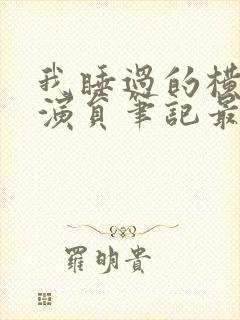 我睡過的橫
演員筆記最
羅明貴